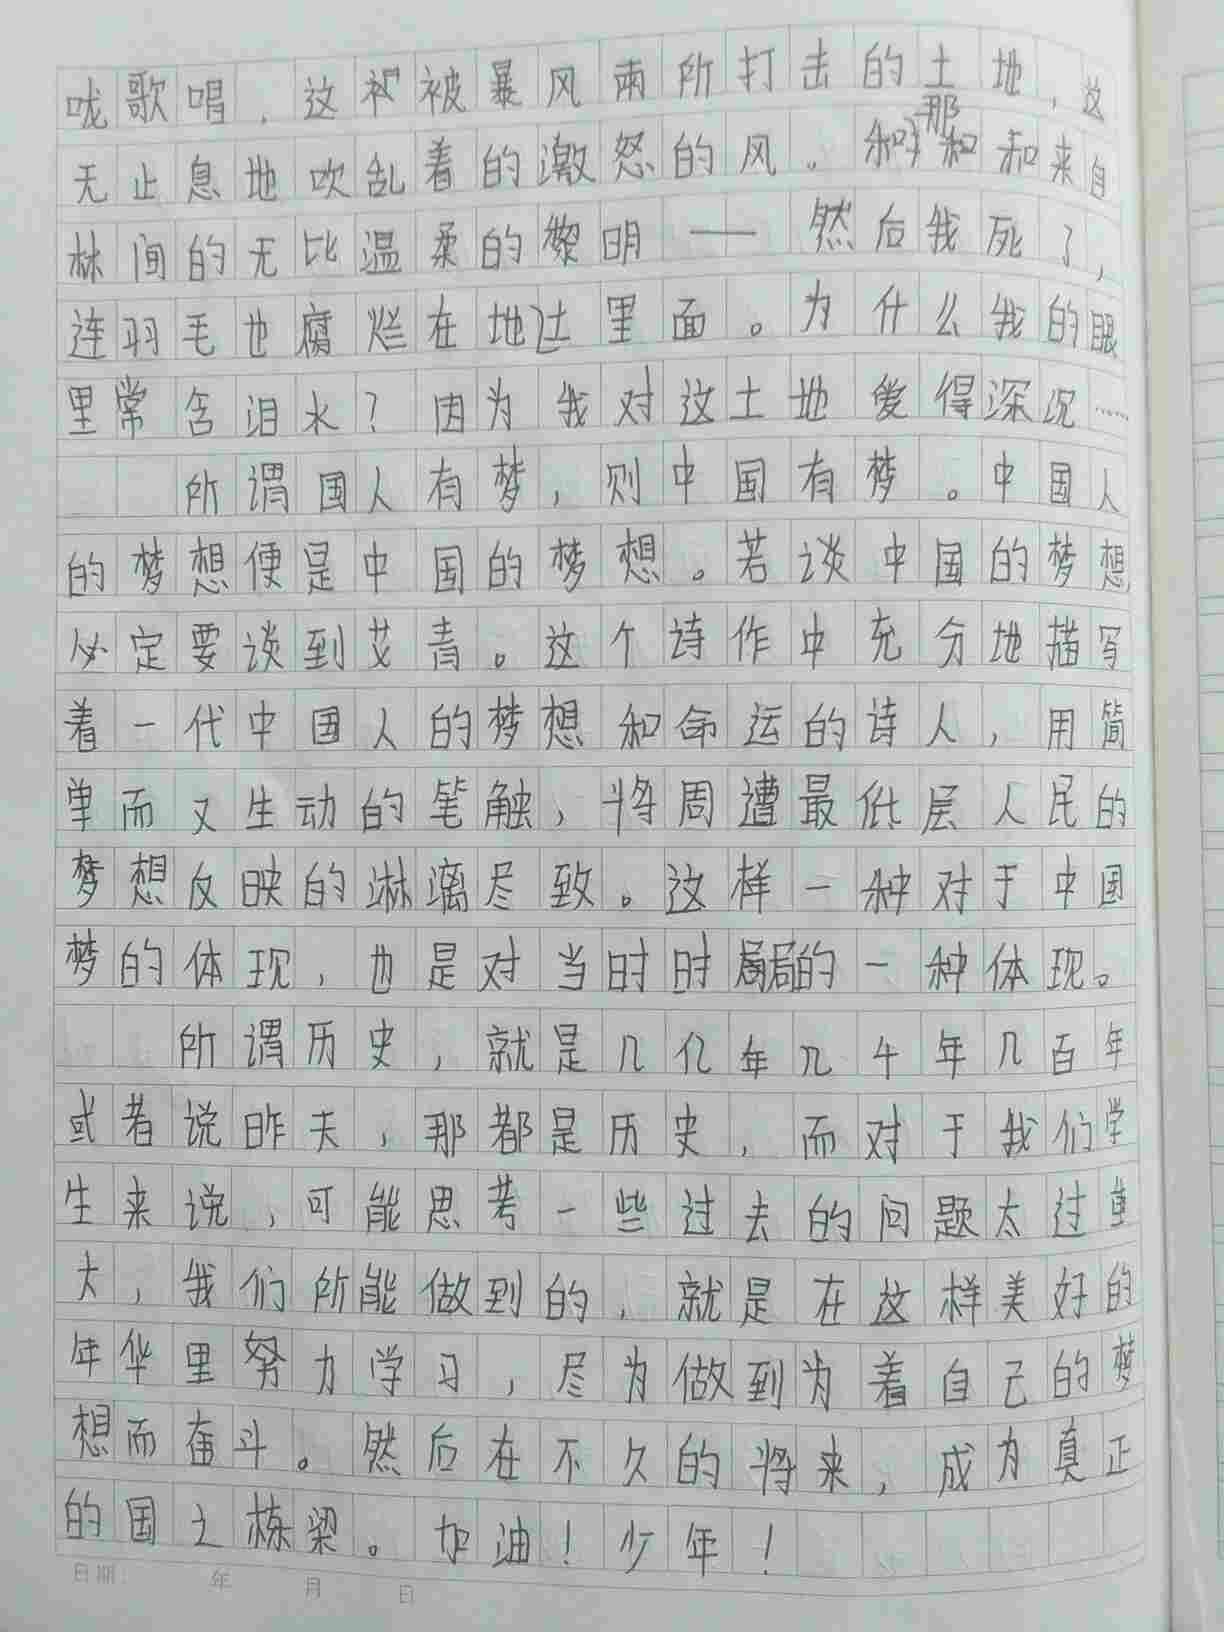 咙歌唱，这被暴风雨所打击的土地，这
无止息地吹乱着的激怒的风。和那和来自
林间的无比温柔的黎明——然后我死了，
连羽毛也腐烂在地里面。为什么我的眼
里常含泪水？因为我对这土地爱得深沉……
所谓国人有梦，则中国有梦。中国人
的梦想便是中国的梦想。若谈中国的梦想
必定要谈到艾青。这个诗作中充分地描写
着一代中国人的梦想和命运的诗人，用简
单而又生动的笔触，将周遭最低层人民的
梦想反映的淋漓尽致。这样一种对于中国
梦的体现，也是对当时时局的一种体现。
所谓历史，就是几亿年几千年几百年
或者说昨天，那都是历史，而对于我们学
生来说，可能思考一些过去的问题太过重
大，我们所能做到的，就是在这样美好的
年华里努力学习，尽为做到为着自己的梦
想而奋斗。然后在不久的将来，成为真正
的国之栋梁。加油！少年！
日期 年 月 日